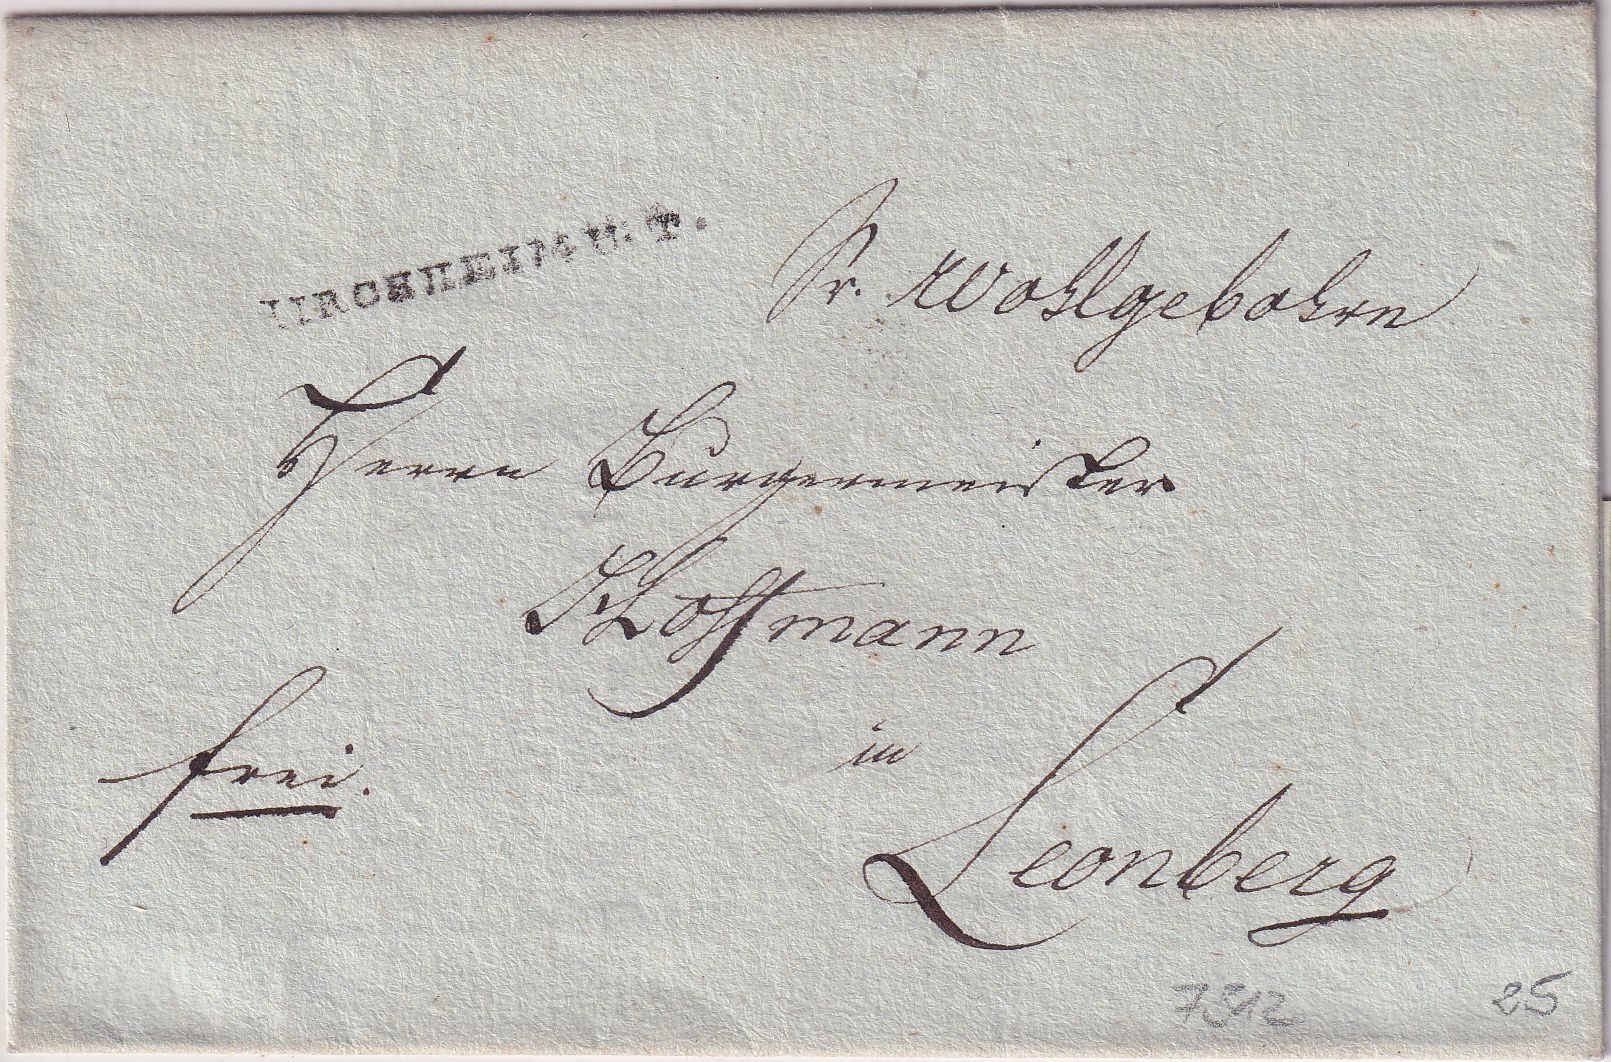 KIRCHHEIM U. T.
Sr. Wohlgebohrn
Herrn Burgermeister
Hoffmann
in
Leonberg
frei.
25